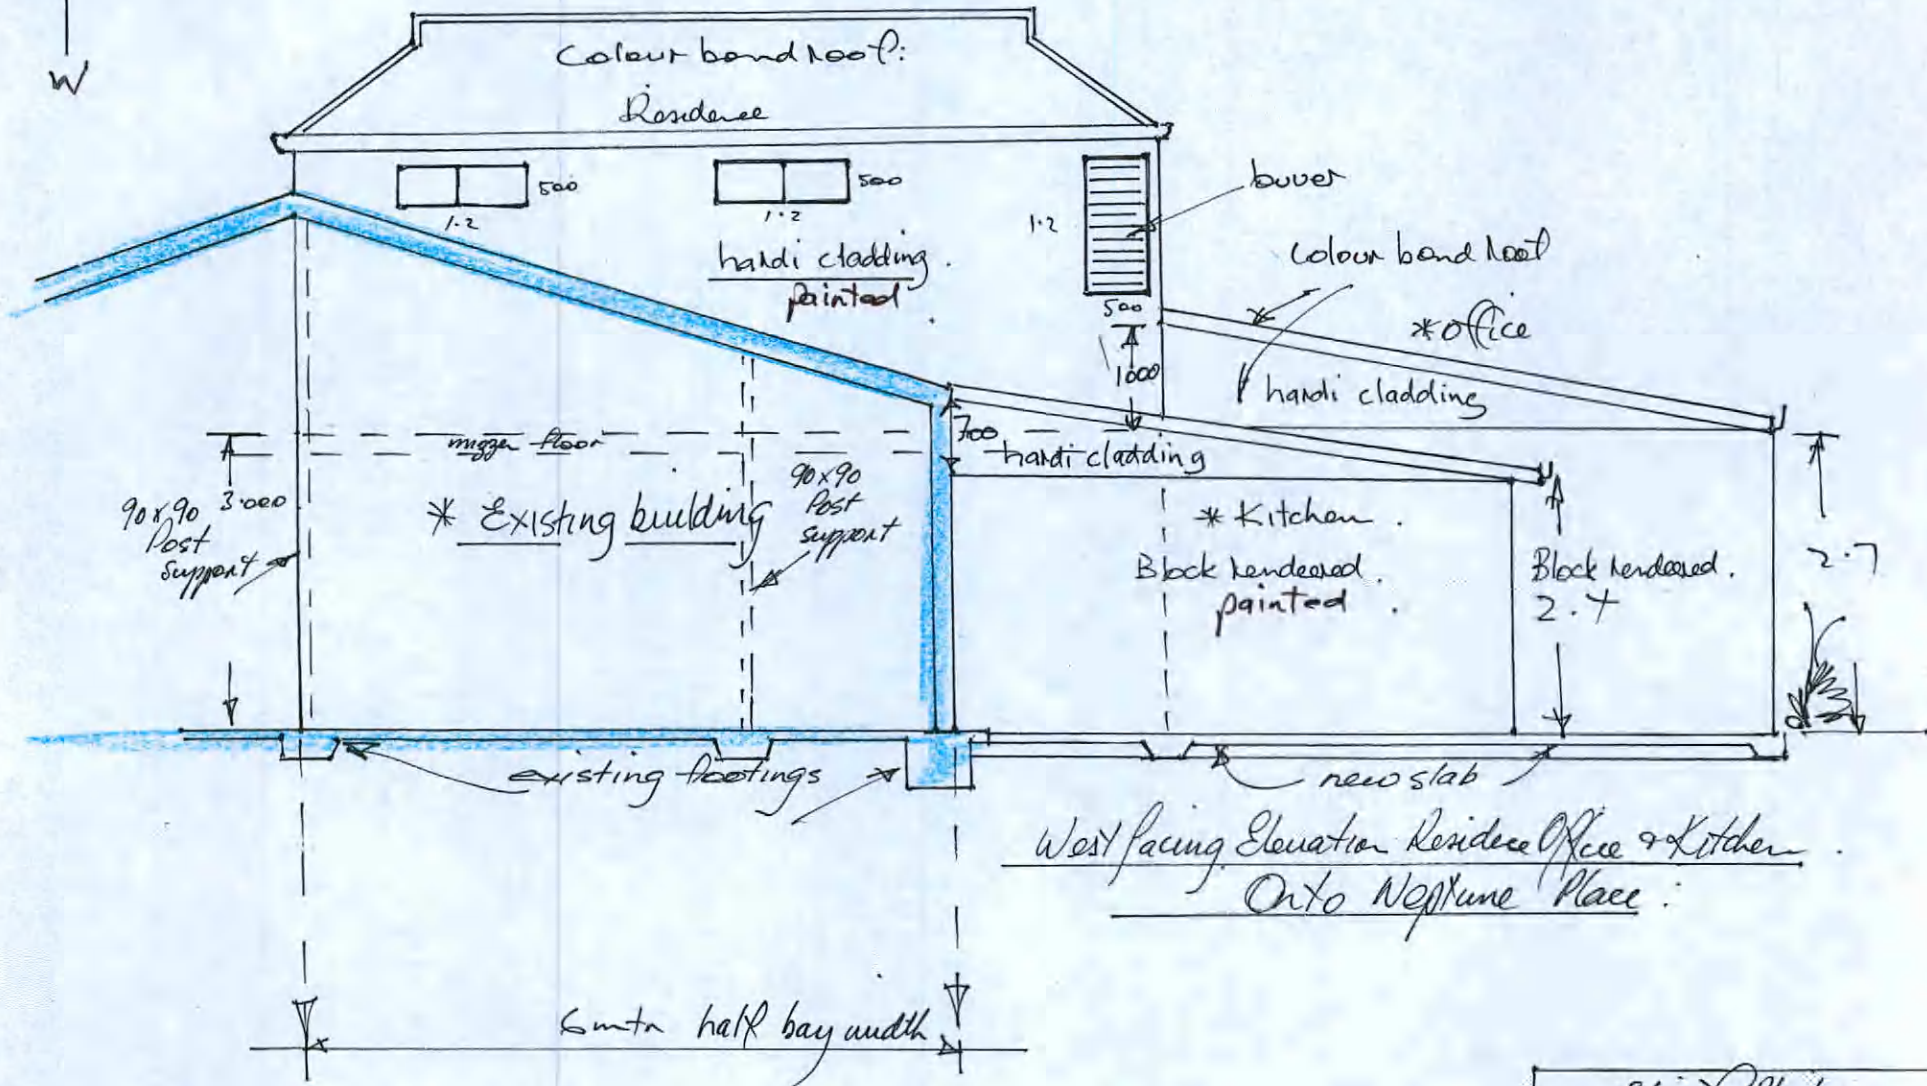 W
Colour bond Roof:
Residence
500
1.2
500
1.2
1.2
louver
500
hardi cladding.
painted
colour bond Roof
*office
1000
hardi cladding
700
hardi cladding
mezzer floor
90x90
Post
support
3.000
* Existing building
90x90
Post
support
* Kitchen.
Block rendered.
painted.
Block rendered.
2.4
2.7
existing footings
new slab
West facing Elevation Residece Office & Kitchen.
Onto Neptune Place:
6mtr half bay width